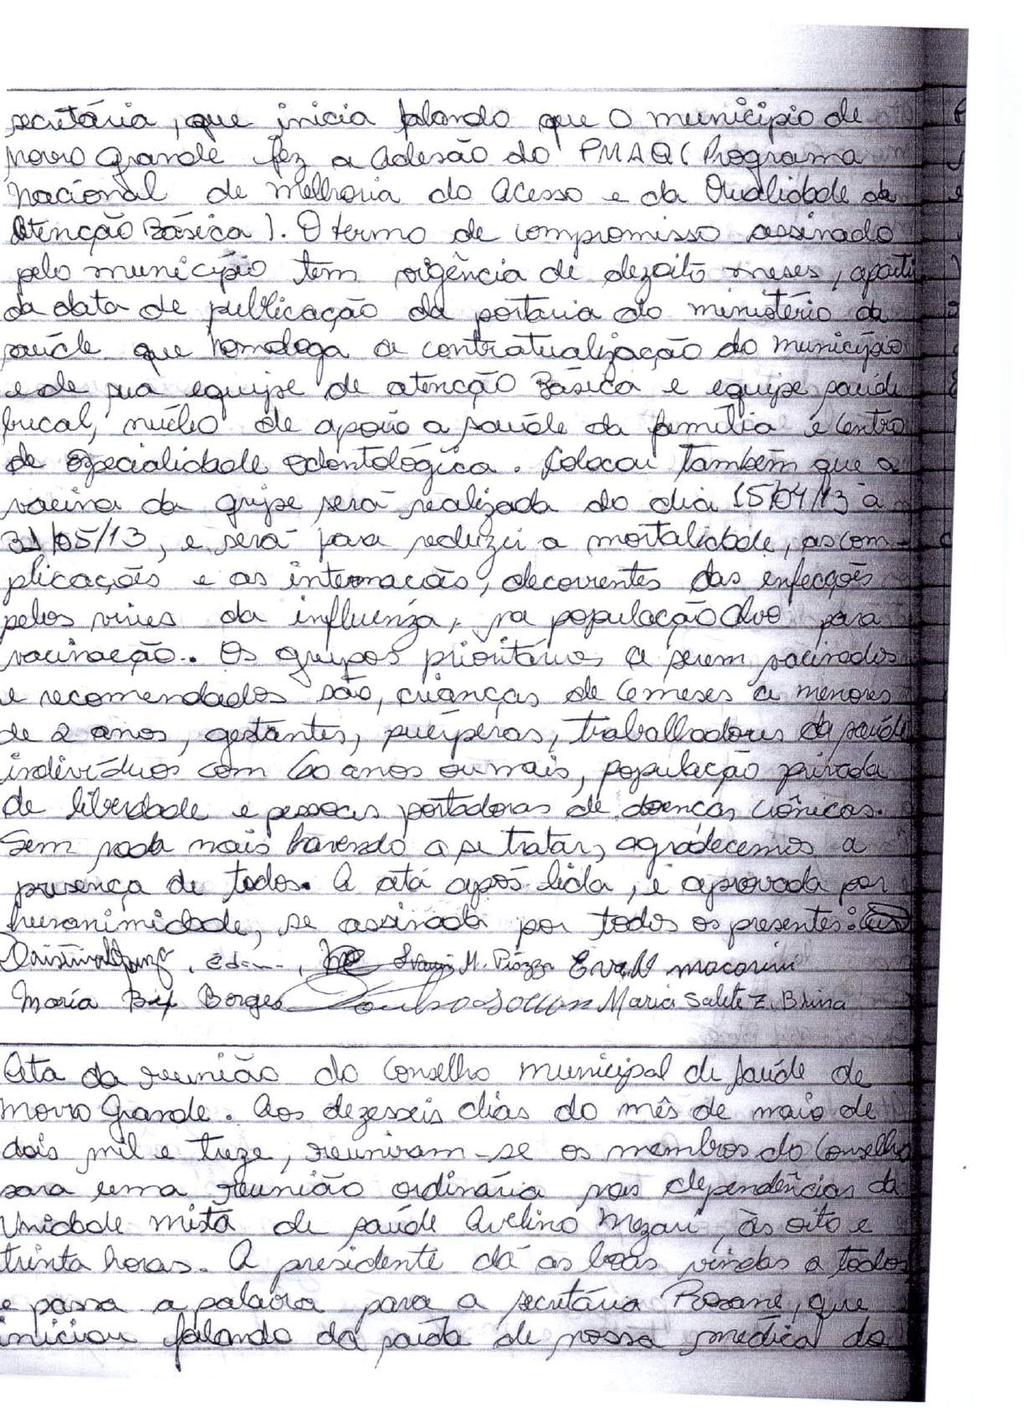 secretária, que inicia falando que o município de
Morro Grande fez a Adesão do PMAQ (Programa
Nacional de Melhoria do Acesso e da Qualidade da
Atenção Básica). O termo de compromisso assinado
pelo município tem vigência de dezoito meses, aparti
da data de publicação da portaria do ministério da
saúde que homologa a contratualização do município
e de sua equipe de atenção Básica e equipe saúde
bucal, núcleo de apoio a saúde da família e Centro
de especialidade odontológica. Colocou também que a
vacina da gripe será realizada do dia 15/04/13 à
31/05/13, e será para reduzir a mortalidade, as com-
plicações e as internações, decorrentes das infecções
pelos vírus da influenza, na população alvo para
vacinação. Os grupos prioritários a serem vacinados
e recomendados são, crianças de 6 meses a menores
de 2 anos, gestantes, puérperas, trabalhadores da saúde
indivíduos com 60 anos ou mais, população privada
de liberdade e pessoas portadoras de doenças crônicas.
Sem nada mais havendo a se tratar, agradecemos a
presença de todos. A ata após lida, é aprovada por
hunanimidade, se assinada por todos os presentes:
H. Piazza Macarini
Maria Bif Borges Maria Salete Z. Brina
Ata da reunião do Conselho municipal de saúde de
Morro Grande. Aos dezesseis dias do mês de maio de
dois mil e treze, reuniram-se os membros do Conselho
para uma reunião ordinária nas dependências da
Unidade mista de saúde Avelino Mezari, às oito e
trinta horas. A presidente dá as boas vindas a todos
e passa a palavra para a secretária Rosane, que
iniciou falando da saída de nossa médica do